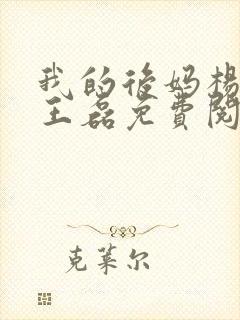 我的後妈杨
王磊免費閱
克莱尔